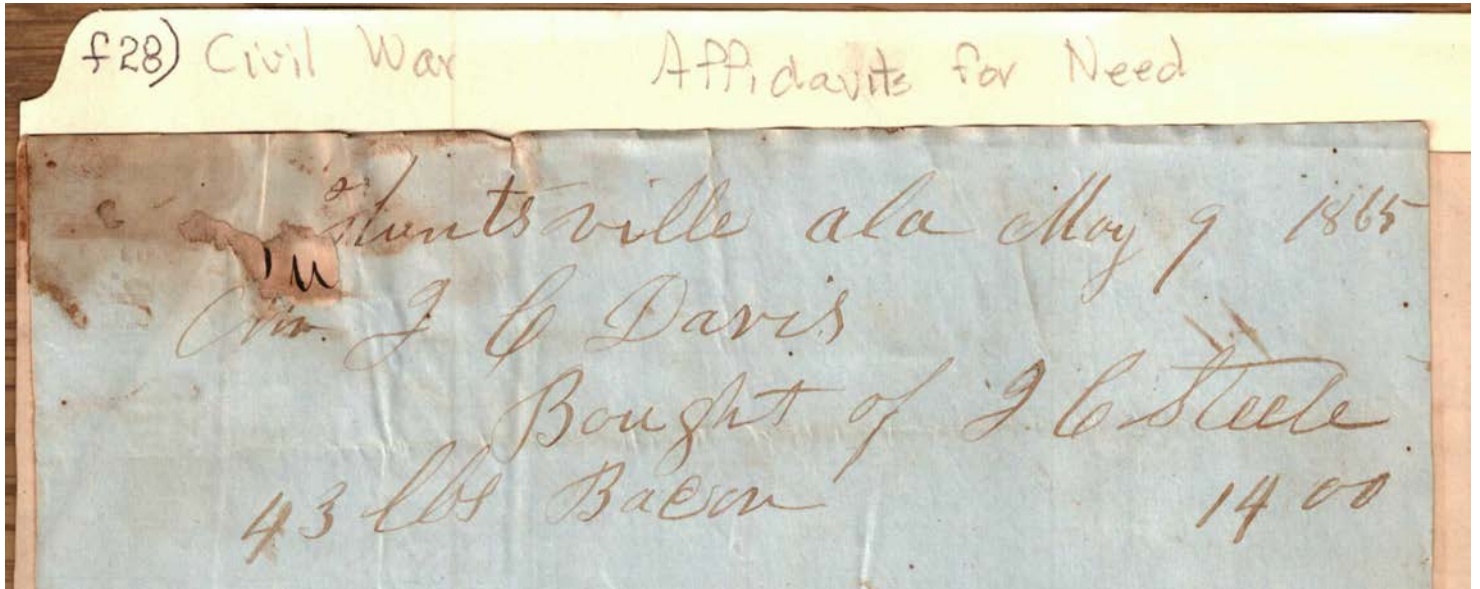 f28) Civil War Affidavits for Need
Huntsville ala May 9 1865
J C Davis
Bought of J. C Steele
43 lbs Bacon 14 00